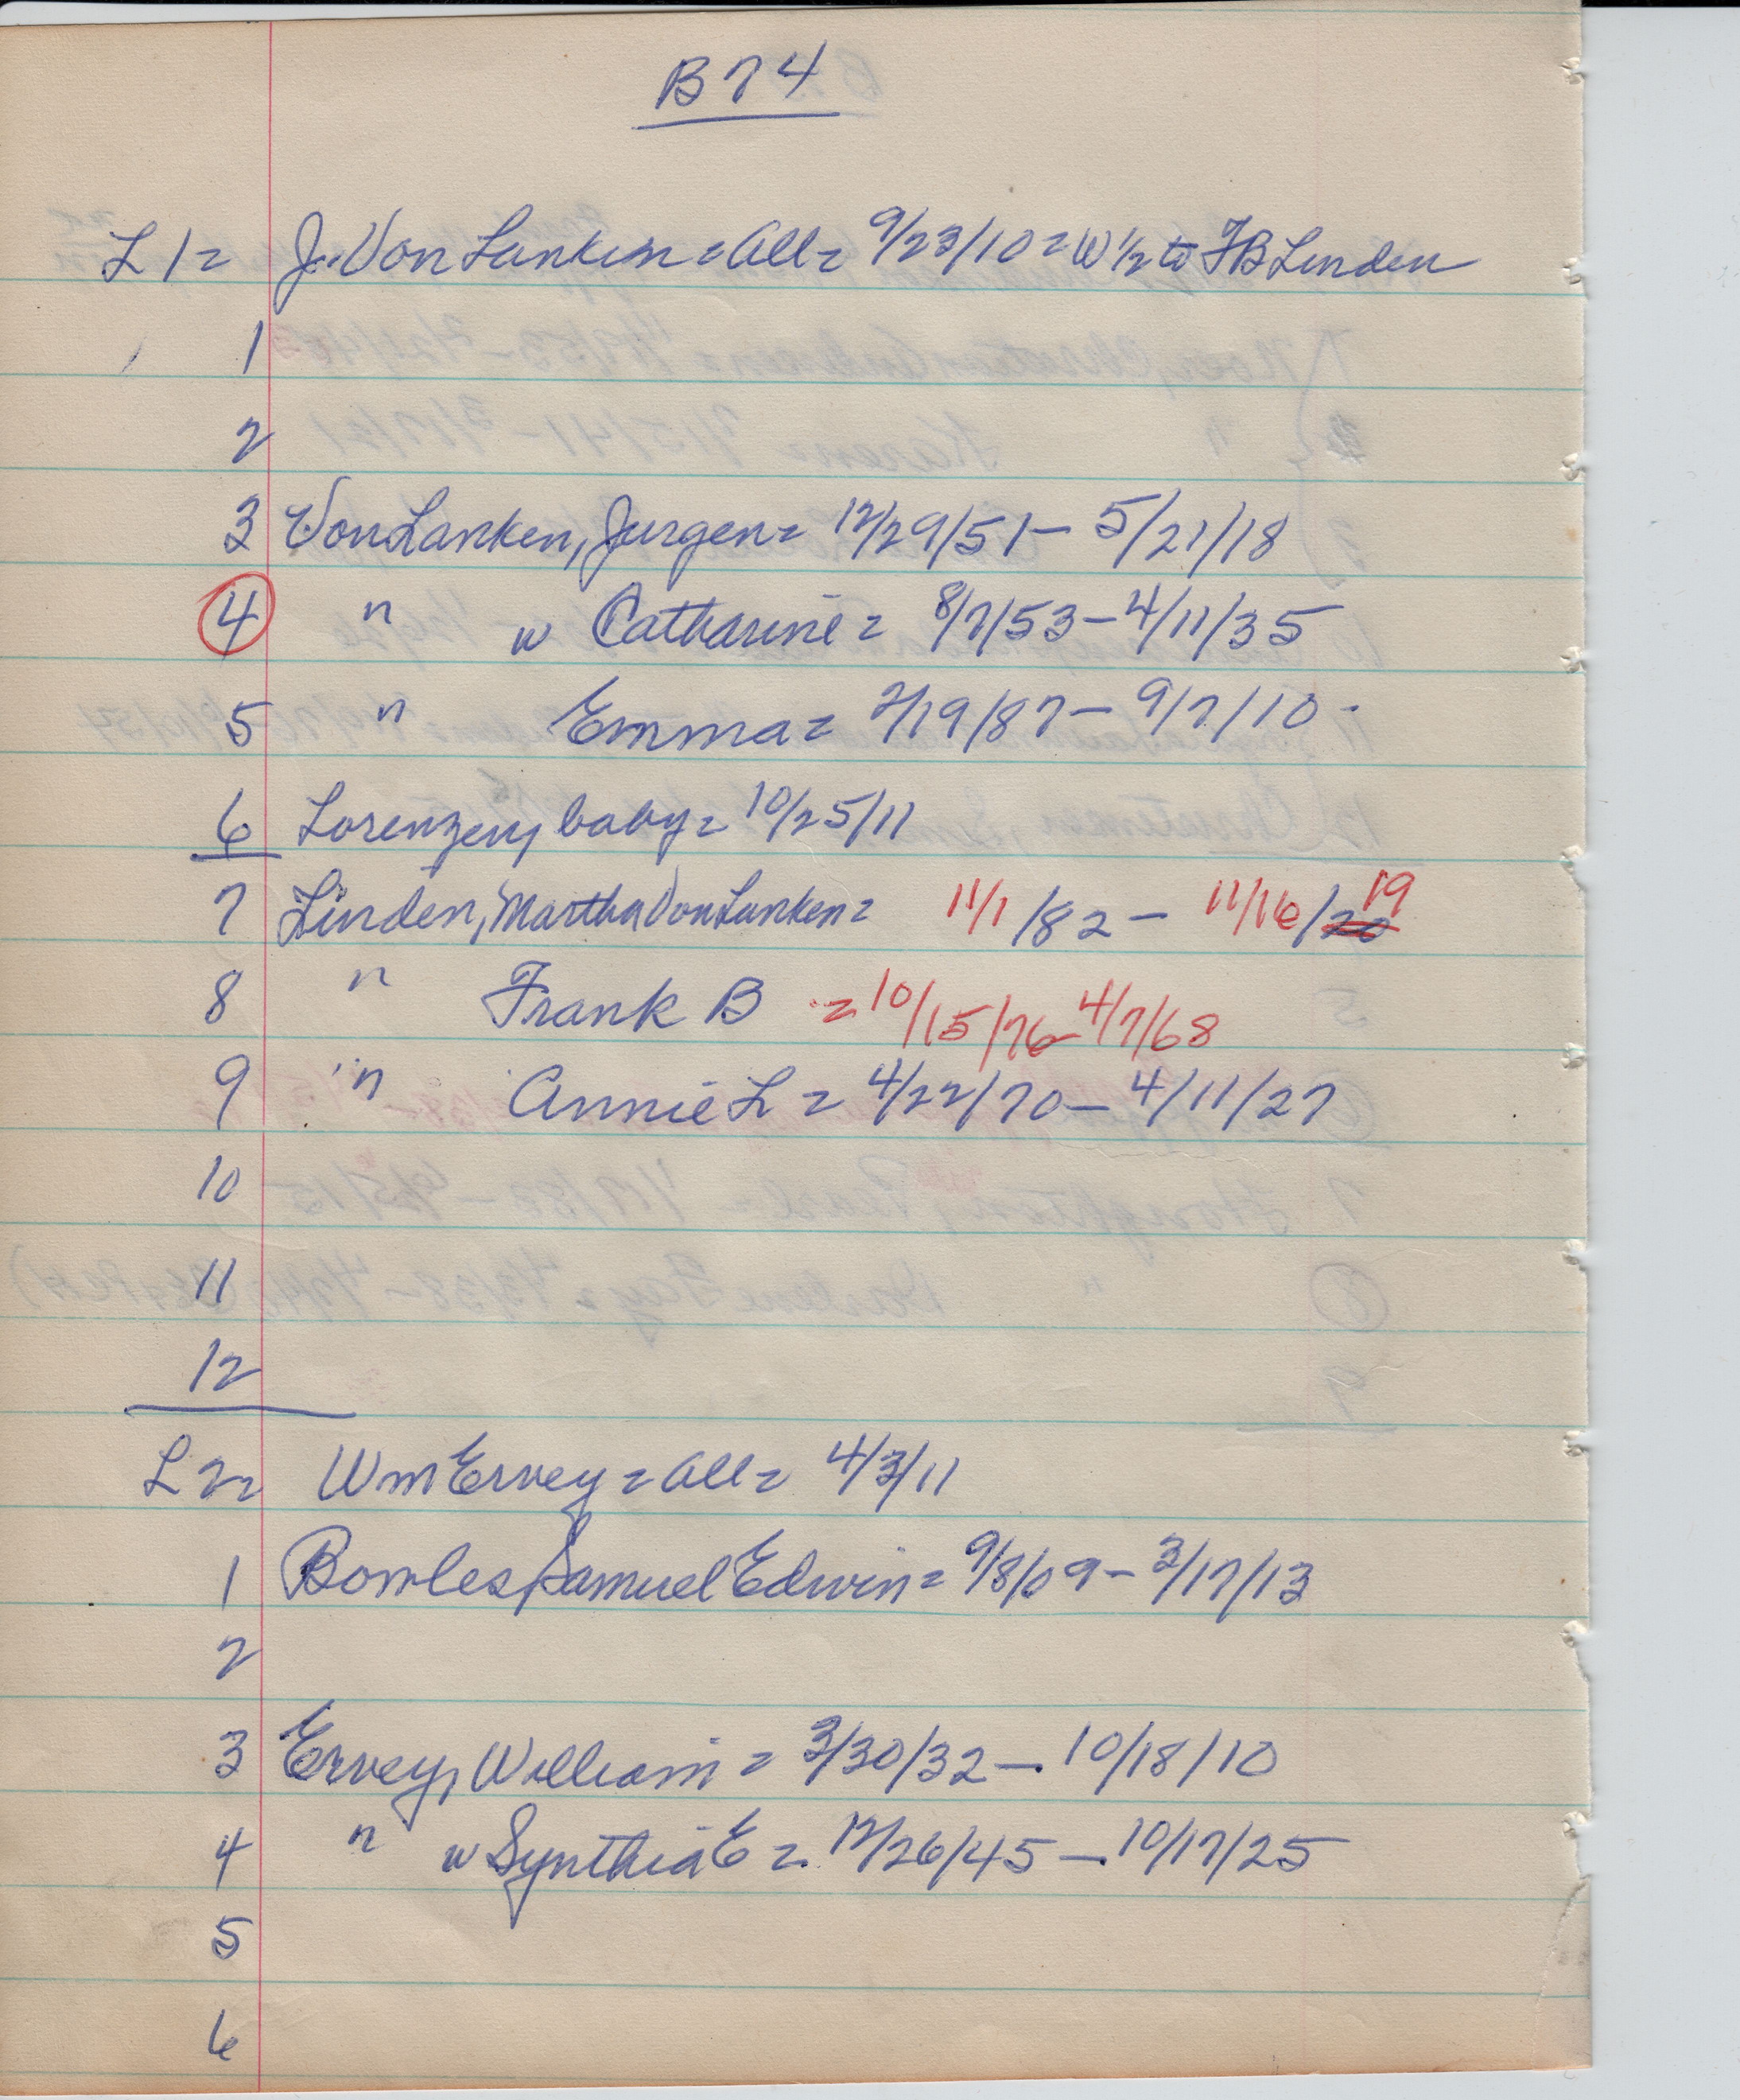 B 74
L 1 = J. Von Lanken = all = 9/23/10 = W 1/2 to FB Linden
1
2
3 Von Lanken, Jurgen = 12/29/51 – 5/21/18
4 " w Catharine = 8/7/53 – 4/11/35
5 " Emma = 2/19/87 – 9/7/10
6 Lorenzen, baby = 10/25/11
7 Linden, Martha Von Lanken = 11/1/82 – 11/16/20 19
8 " Frank B = 10/15/76 – 4/7/68
9 " Annie L = 4/22/70 – 4/11/27
10
11
12
L 2 = Wm Ervey = all = 4/3/11
1 Bowles, Samuel Edwin = 9/8/09 – 3/17/13
2
3 Ervey, William = 3/30/32 – 10/18/10
4 " w Synthia E = 12/26/45 – 10/17/25
5
6